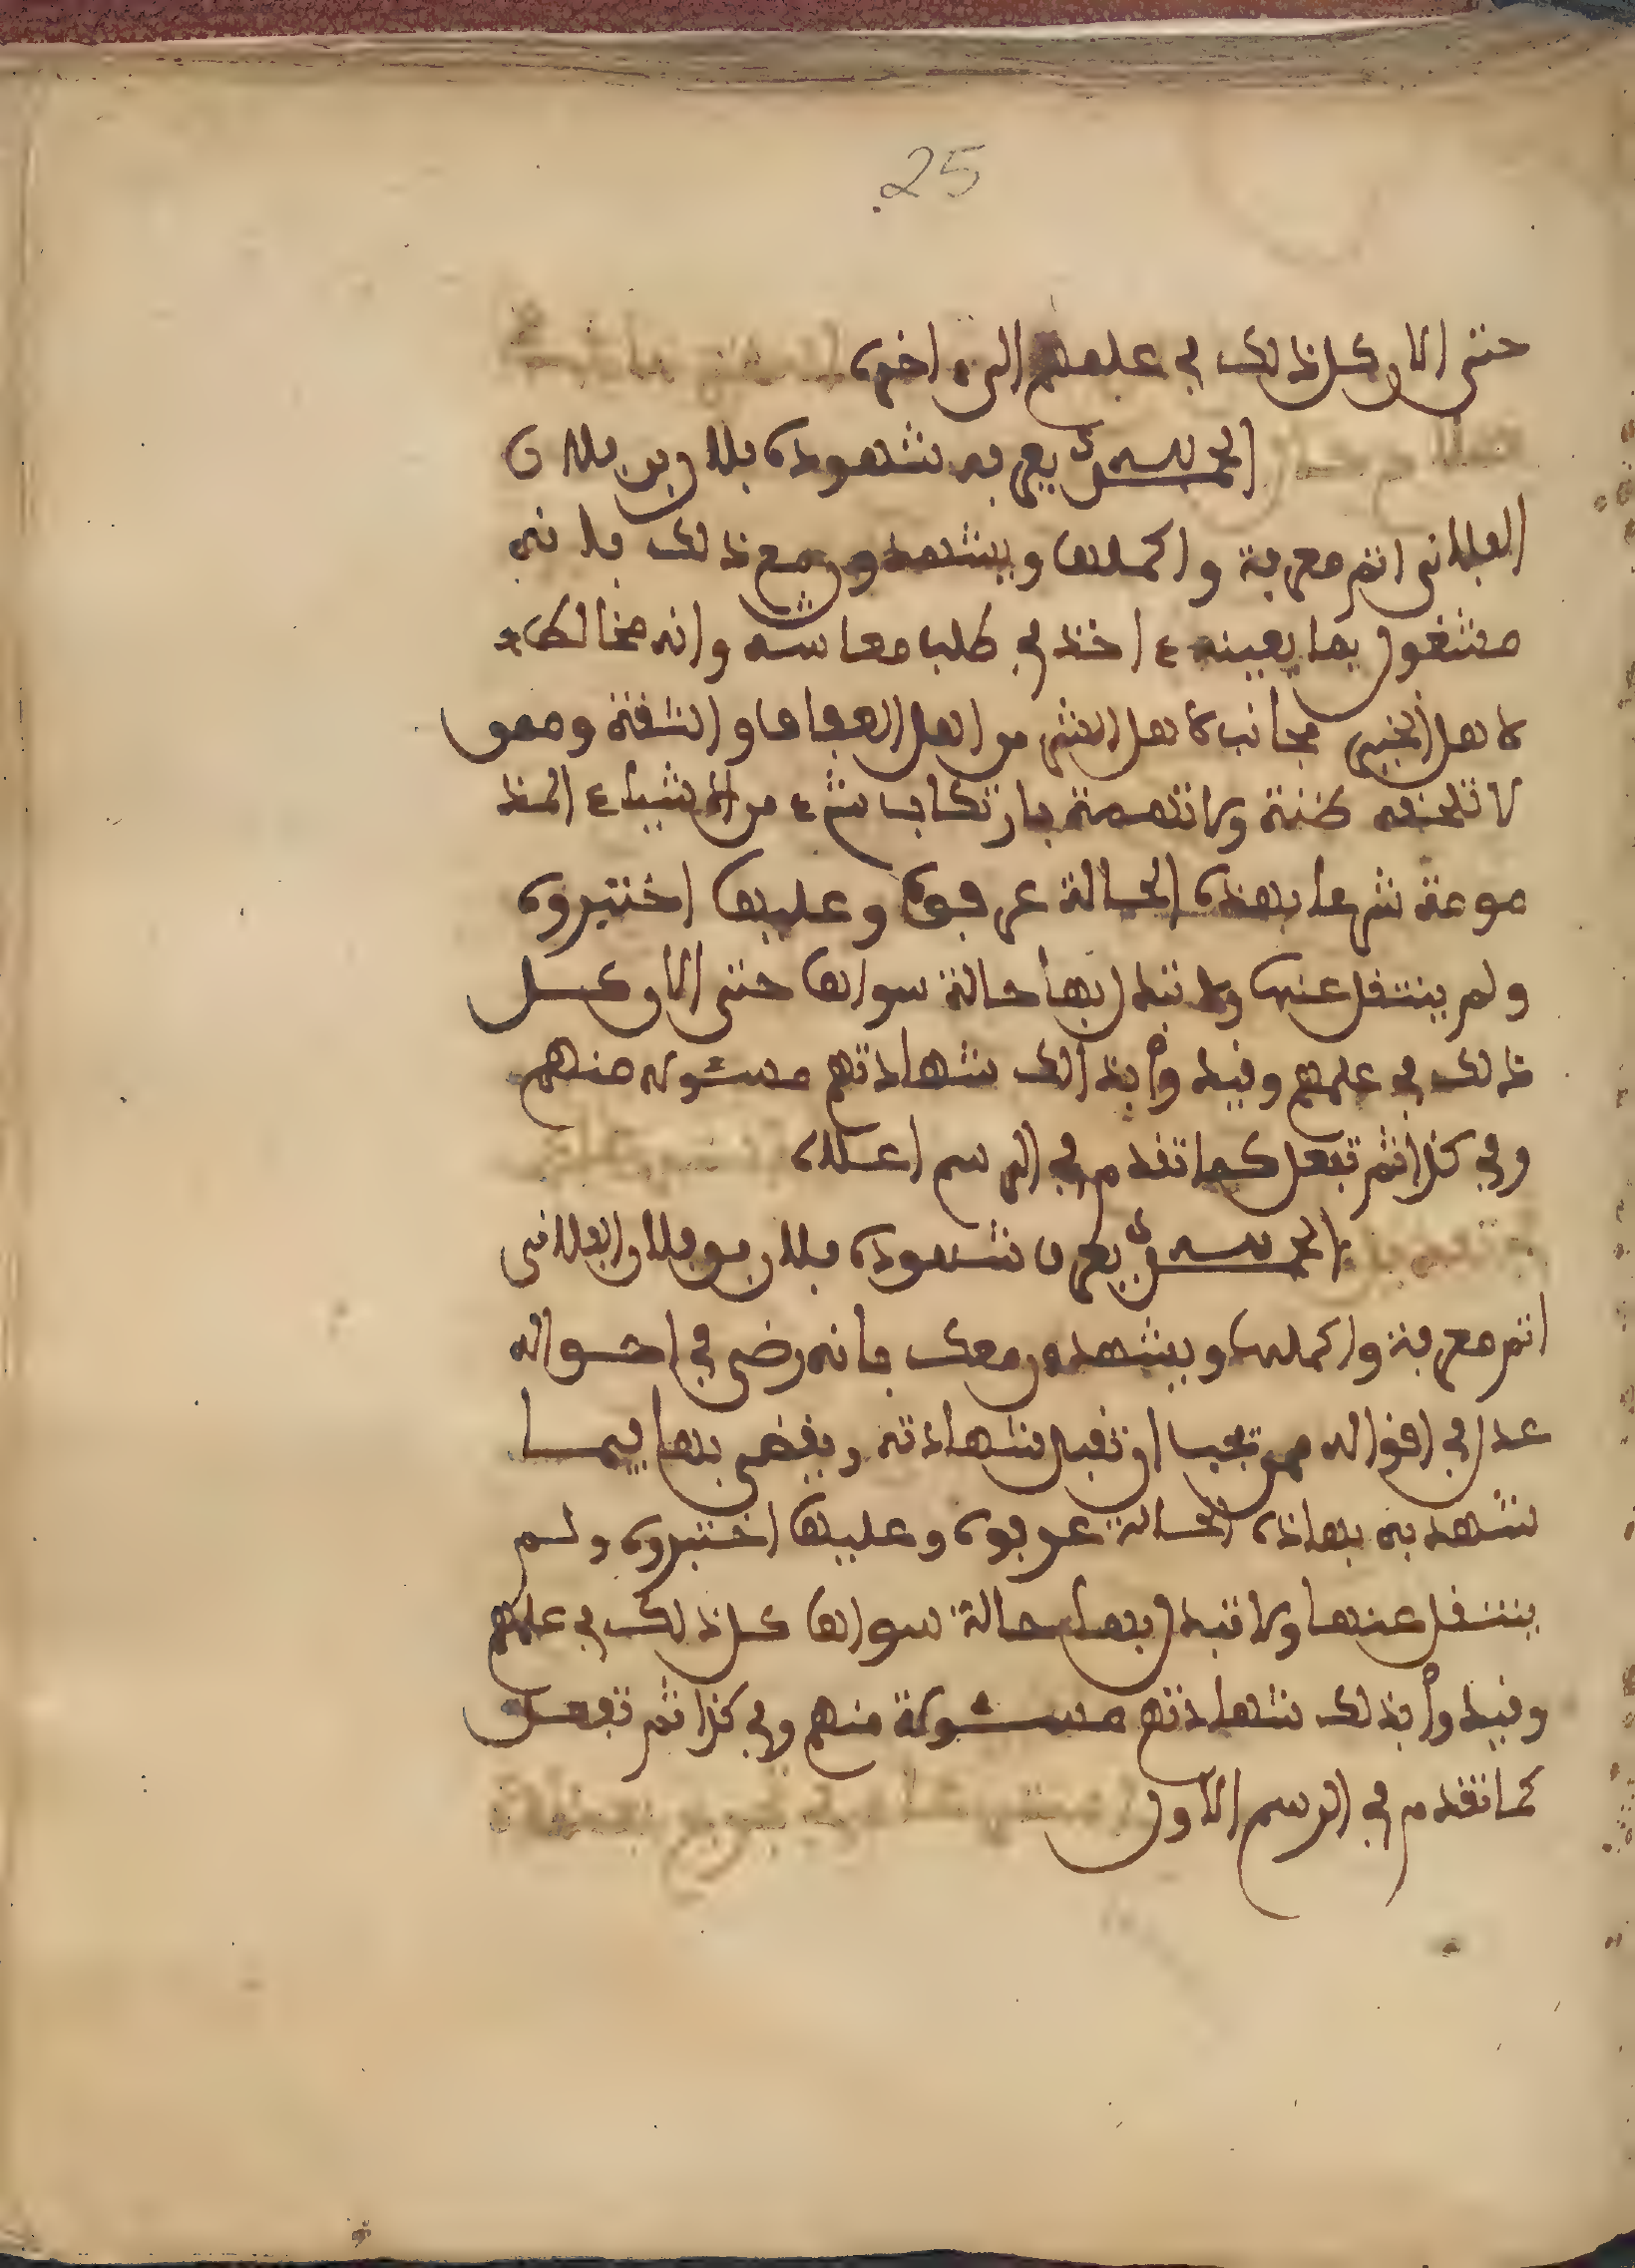 25
حتى الان كل ذلك في علمهم الى ءاخره
الحمد لله يعرفه شهوده فلان بن فلان
الفلاني اتم معرفة واكملها ويشهدون مع ذلك بانه
مشغول بما يعينه ءاخذ في طلب معاشه وانه مخالط
لاهل الخير مجانب لاهل الشر من اهل العفاف والثقة وممن
لا تلحقه ظنة ولا تهمة بارتكاب شيء من الاشياء المذ
مومة شرعا بهذه الحالة عرفوه وعليها اختبروه
ولم ينتقل عنها ولا تبدل بها حالة سواها حتى الان كل
ذلك في علمهم وقيدوا بذالك شهادتهم مسئولة منهم
وفي كذا ثم تفعل كما تقدم في الرسم اعلاه
الحمد لله يعرف شهوده فلان بن فلان الفلاني
اتم معرفة واكملها ويشهدون معك بانه رضى في احواله
عدل في اقواله ممن تجب ان تقبل شهادته ويقضى بها فيما
شهد به بهاذه الحالة عرفوه وعليها اختبروه ولم
ينتقل عنها ولا تبدل بها حالة سواها كل ذلك في علمهم
وقيدوا بذلك شهادتهم مسئولة منهم وفي كذا ثم تفعل
كما تقدم في الرسم الاول